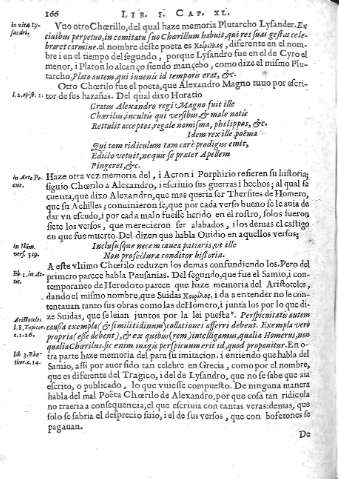 166 LIB. I. CAP. XL.
in vita Ly-
sandri.
Vno otro Chœrillo, del qual haze memoria Plutarcho Lysander. Ex
ciuibus perpetuo, in comitatu suo Chœrillum habuit, qui res suai gestas cele-
braret carmine. el nombre deste poeta es diferente en el nom-
bre i en el tiempo del segundo, porque Lysandro fue en el de Cyro el
menor, i Platon lo alcanço siendo mançebo, como dize el mismo Plu-
tarcho, Plato autem, qui iuuenis id temporis erat, &c.
Otro Chœrilo fue el poeta, que Alexandro Magno tuuo por escri-
l. 2. epist. 1. tor de sus hazañas. Del qual dixo Horatio
Gratus Alexandro regi Magno fuit ille
Chœrilus, incultis qui versibus & male natis
Rettulit acceptos, regale nomisma, philippos, &c.
Idem rex ille poëma
Qui tam ridiculum tam carè prodigus emit,
Edicto vetuit, ne quis se præter Apellem
Pingeret, &c.
in Art. Po-
et.
Haze otra vez memoria del, i Acron i Porphirio refieren su historia;
siguio Chœrilo a Alexandro, i escriuio sus guerras i hechos; al qual se
cuenta, que dixo Alexandro, que mas queria ser Thersites de Homero,
que su Achiles; i conuinieron se, que por cada verso bueno se le auia de
dar vn escudo, i por cada malo fuesse herido en el rostro, solos fueron
siete los versos, que merecieron ser alabados, i los demas el castigo
en que fue muerto. Del dizen que habla Ouidio en aquellos versos:
in Ibim.
vers. 519.
Inclususque necem cauea patiaris, vt ille
Non profectura conditor historiæ.
A este vltimo Cherilo reduzen los demas confundiendo los. Pero del
primero parece habla Pausanias. Del segundo, que fue el Samio, i con-
temporaneo de Herodoto parece que haze memoria del Aristoteles,
dando el mismo nombre, que Suidas i da a entender no le con-
tentauan tanto sus obras como las de Homero, i junta los por lo que di-
ze Suidas, que se leian juntos por la lei puesta. Perspicuitatis autem
Aristotelis
l. 8. Topicor.
c. 1. 26.
causa exempla (& similitudinum) collationes afferri debent. Exempla verò
propria (esse debent), & ex quibus (rem) intelligamus, qualia Homerus, non
qualia Chœrilus. sic enim magis perspicuum erit id, quod proponitur. En o-
lib. 3. Rhe-
tor. c. 14.
tra parte haze memoria del para su imitacion. i entiendo que habla del
Samio, assi por auer sido tan celebre en Grecia, como por el nombre,
que es diferente del Tragico, i del de Lysandro, que no se sabe que aia
escrito, o publicado, lo que vuiesse compuesto. De ninguna manera
habla del mal Poëta Chœrilo de Alexandro, por que cosa tan ridicola
no traeria a consequencia, el que escriuia con tantas veras: demas, que
solo se sabria el desprecio suio, i el de sus versos, que con bofetones se
pagauan.
De